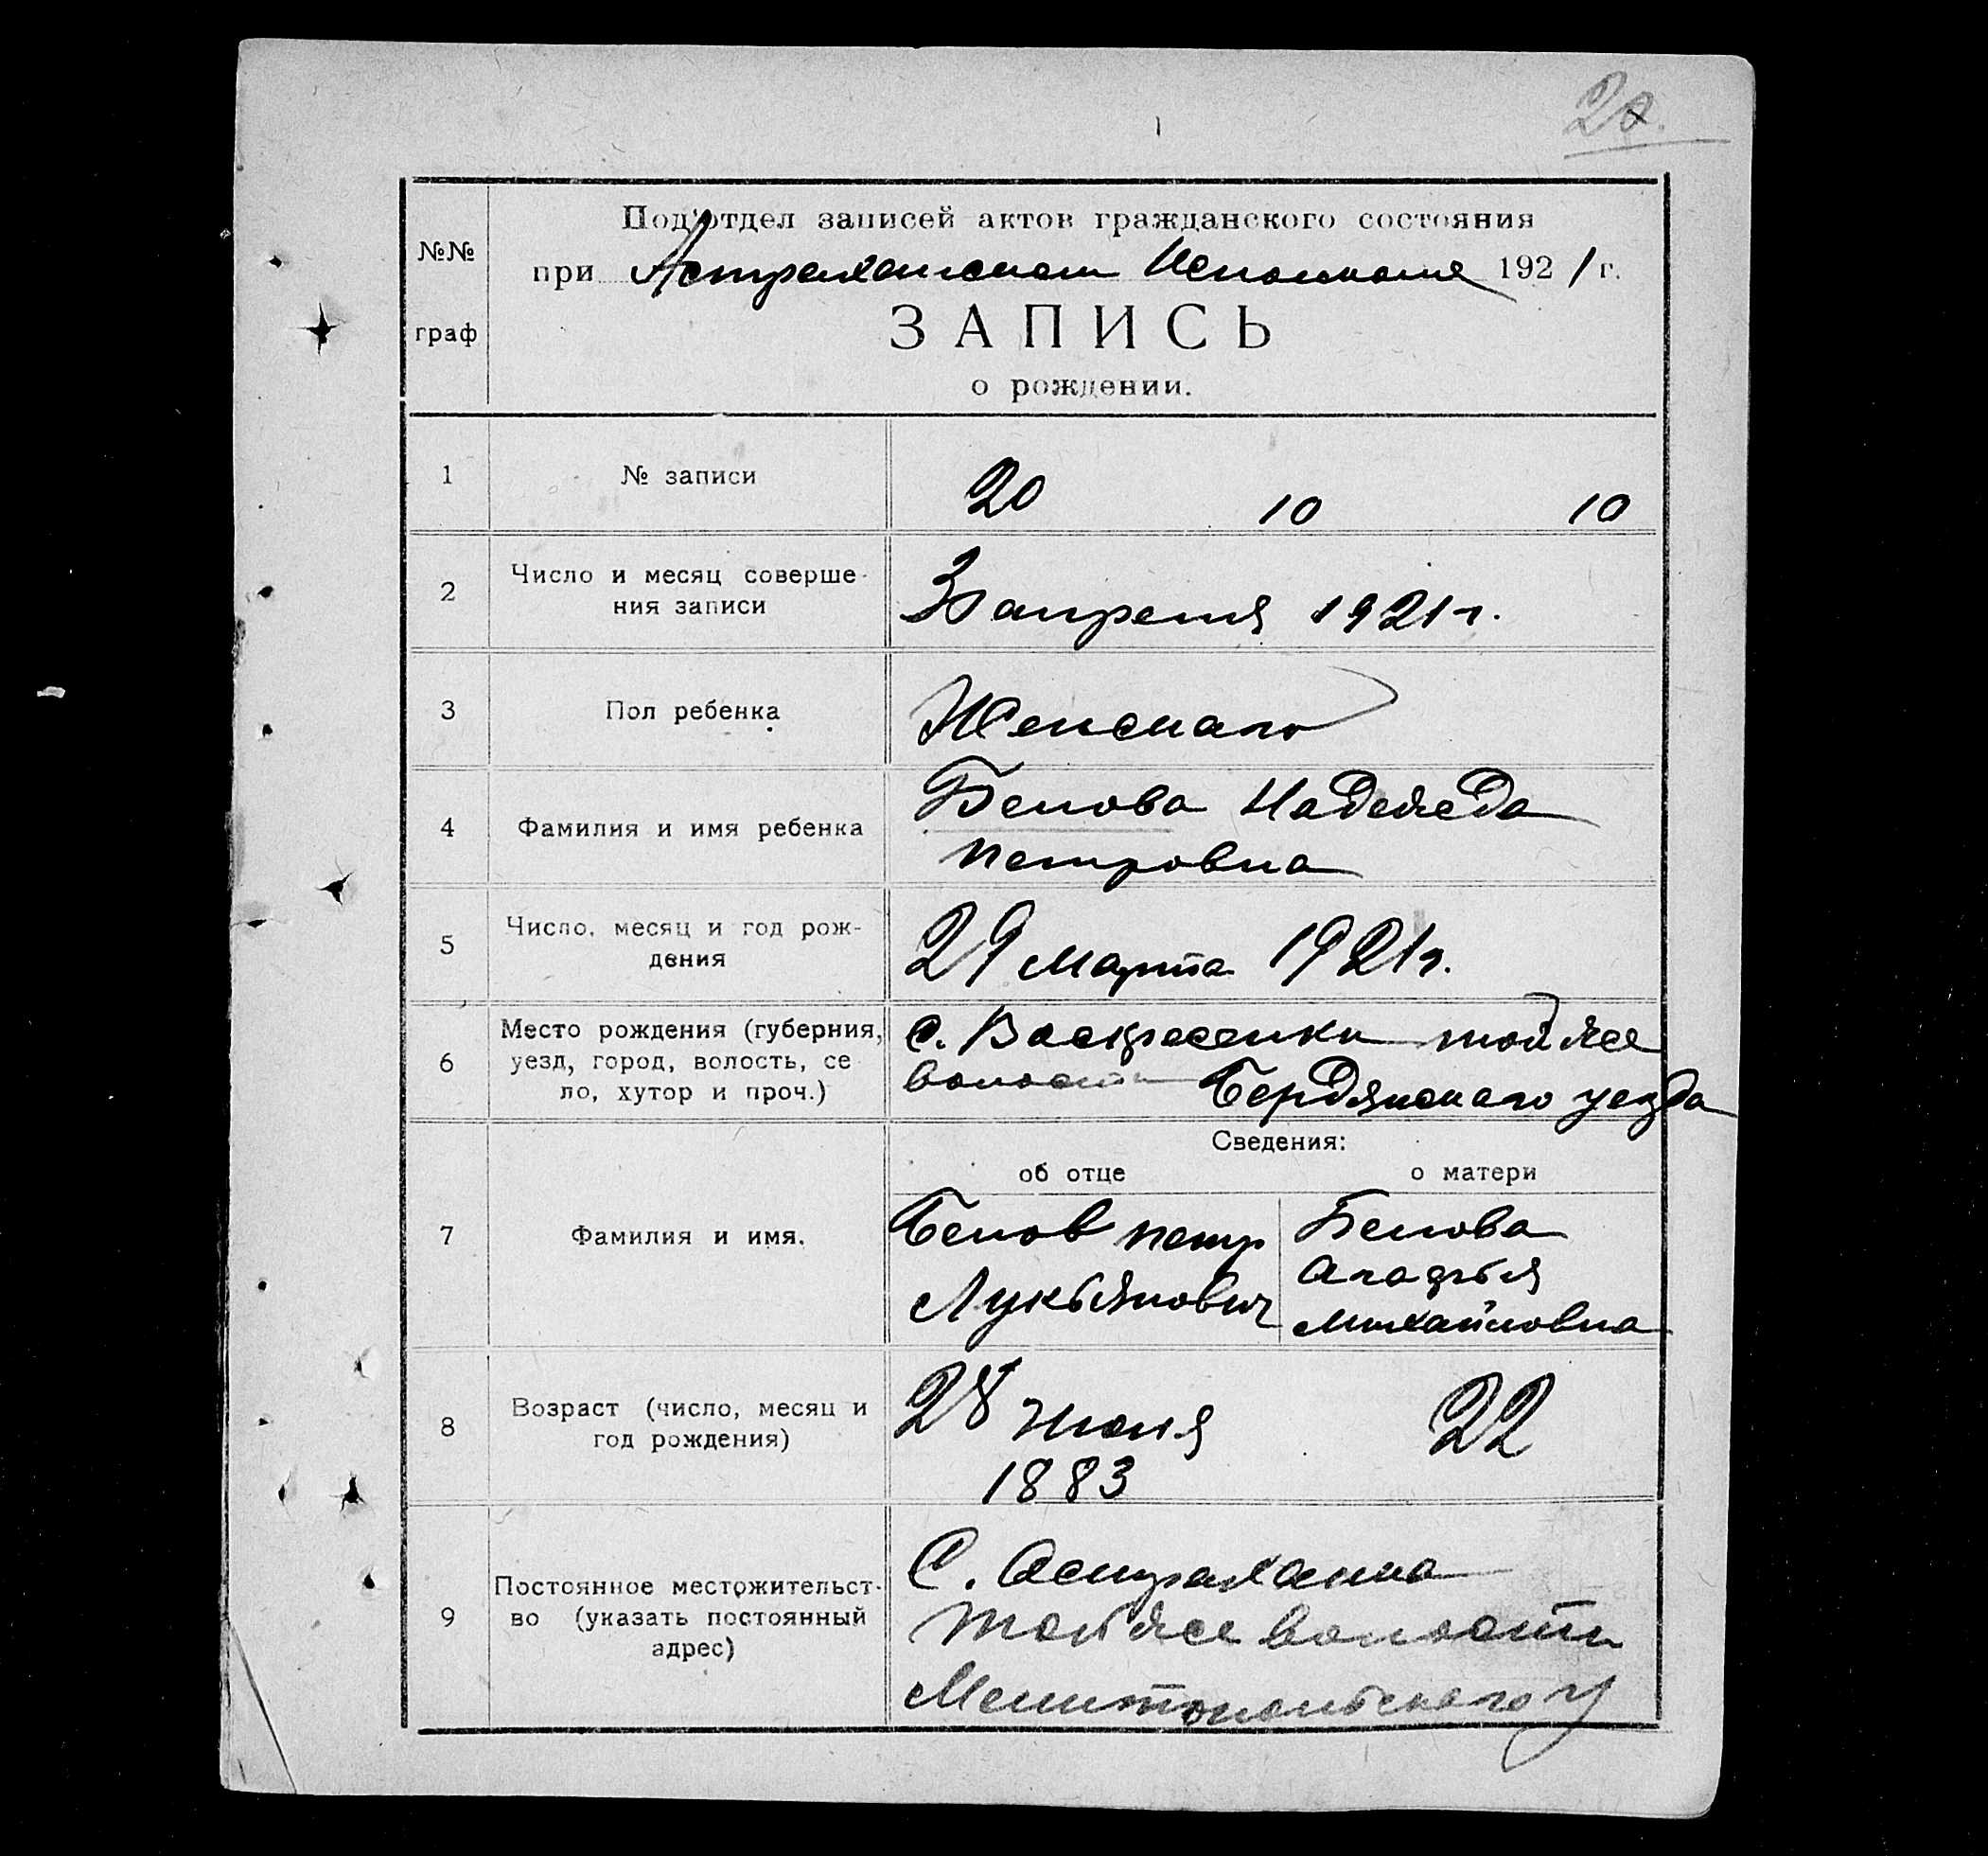 20.
Под'отдел записей актов гражданского состояния
№№
при Астраханском Исполкоме 1921 г.
граф
ЗАПИСЬ
о рождении.
1 № записи 20 10 10
2 Число и месяц соверше-
ния записи
3 апреля 1921 г.
3 Пол ребенка Женскаго
4 Фамилия и имя ребенка
Белова Надежда
Петровна
5 Число, месяц и год рож-
дения
29 марта 1921 г.
6 Место рождения (губерния,
уезд, город, волость, се
ло, хутор и проч.)
с. Воскресенки той же
волости Бердянскаго уезда
Сведения:
об отце о матери
7 Фамилия и имя.
Белов Петр
Лукьянович
Белова
Агафья
Михайловна
8 Возраст (число, месяц и
год рождения)
28 июля
1883
22
9 Постоянное местожительст-
во (указать постоянный
адрес)
С. Астраханка
той же волости
Мелитопольскаго у